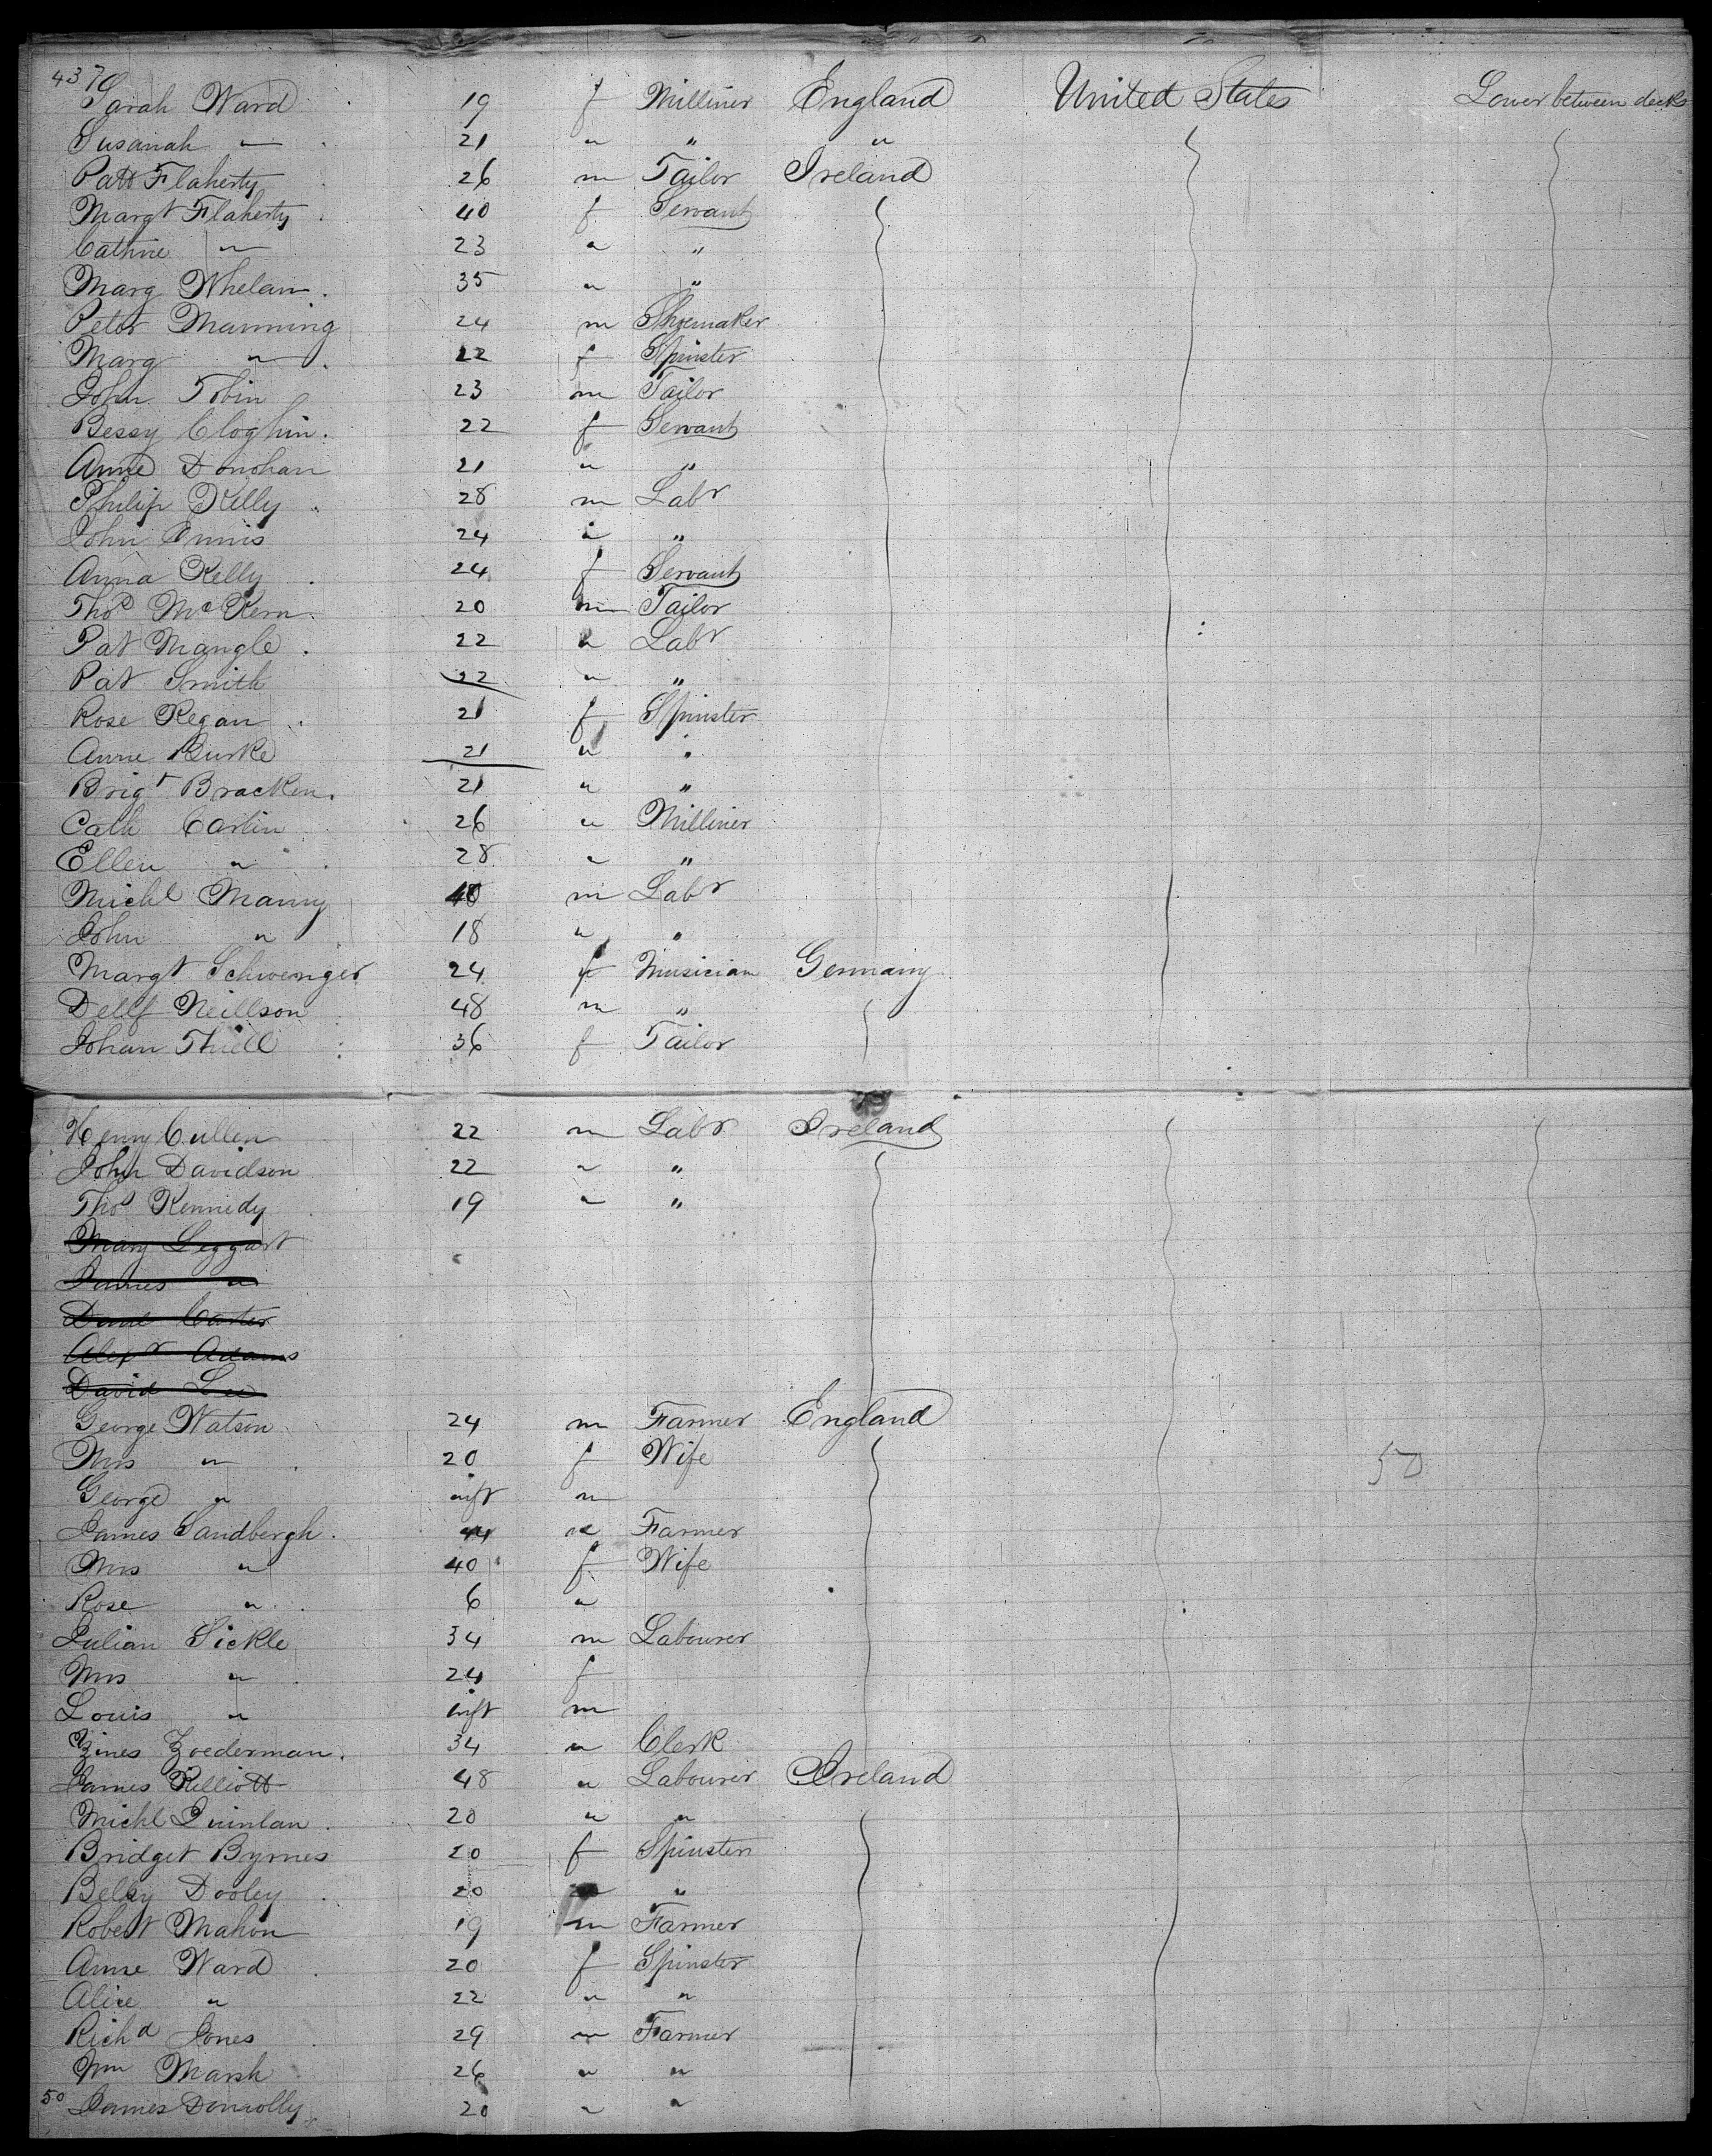 437
Sarah Ward 19 f Milliner England United States Lower between decks
Susanah " 21 " " "
Patt Flaherty 26 m Tailor Ireland
Margt Flaherty 40 f Servant
Cathrie " 23 " "
Marg Whelan 35 " "
Peter Manning 24 m Shoemaker
Marg " 22 f Spinster
John Tobin 23 m Tailor
Bessy Cloghin 22 f Servant
Anne Donohan 21 " "
Philip Kelly 28 m Labr
John Ennis 24 " "
Anna Kelly 24 f Servant
Thos McKern 20 m Tailor
Pat Mangle 22 " Labr
Pat Smith 22 " "
Rose Regan 21 f Spinster
Anne Burke 21 " "
Brigt Bracken 21 " "
Cath Carlin 26 " Milliner
Ellen " 28 " "
Michl Manny 40 m Labr
John " 18 " "
Margt Schwenger 24 f Musician Germany
Dellf Neillson 48 m "
Johan Thiell 36 f Tailor
Henry Cullen 22 m Labr Ireland
John Davidson 22 " "
Thos Kennedy 19 " "
Mary Leggart
James "
Danl Carter
Alexr Adams
David Lee
George Watson 24 m Farmer England
Mrs " 20 f Wife 50
George " inft m
James Sandbergh 44 m Farmer
Mrs " 40 f Wife
Rose " 6 "
Julian Sickle 34 m Labourer
Mrs " 24 f
Louis " inft m
Zines Zoederman 34 " Clerk
James Killiott 48 " Labourer Ireland
Michl Quinlan 20 " "
Bridget Byrnes 20 f Spinster
Dooley 20 "
Robert Mahon 19 m Farmer
Anne Ward 20 f Spinster
Alice " 22 " "
Richd Jones 29 m Farmer
Wm Marsh 26 " "
50 James Donnolly 20 " "